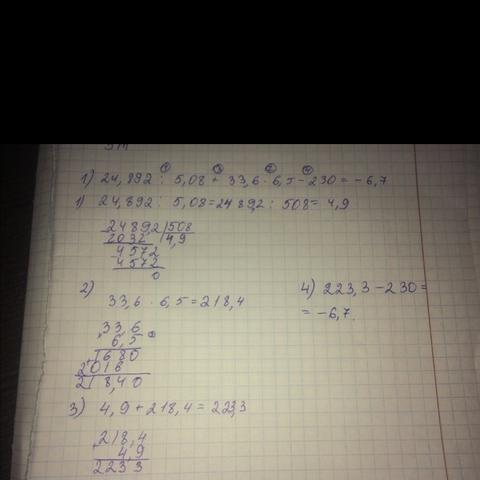 ① ③ ② ④
1) 24,892 : 5,08 + 33,6 · 6,5 - 230 = -6,7
1) 24,892 : 5,08 = 2489,2 : 508 = 4,9
2489,2 | 508
2032 | 4,9
4572
4572
0
2)
33,6 · 6,5 = 218,4
33,6
6,5
1680
2016
218,40
3) 4,9 + 218,4 = 223,3
218,4
4,9
2233
4) 223,3 - 230 =
= -6,7.